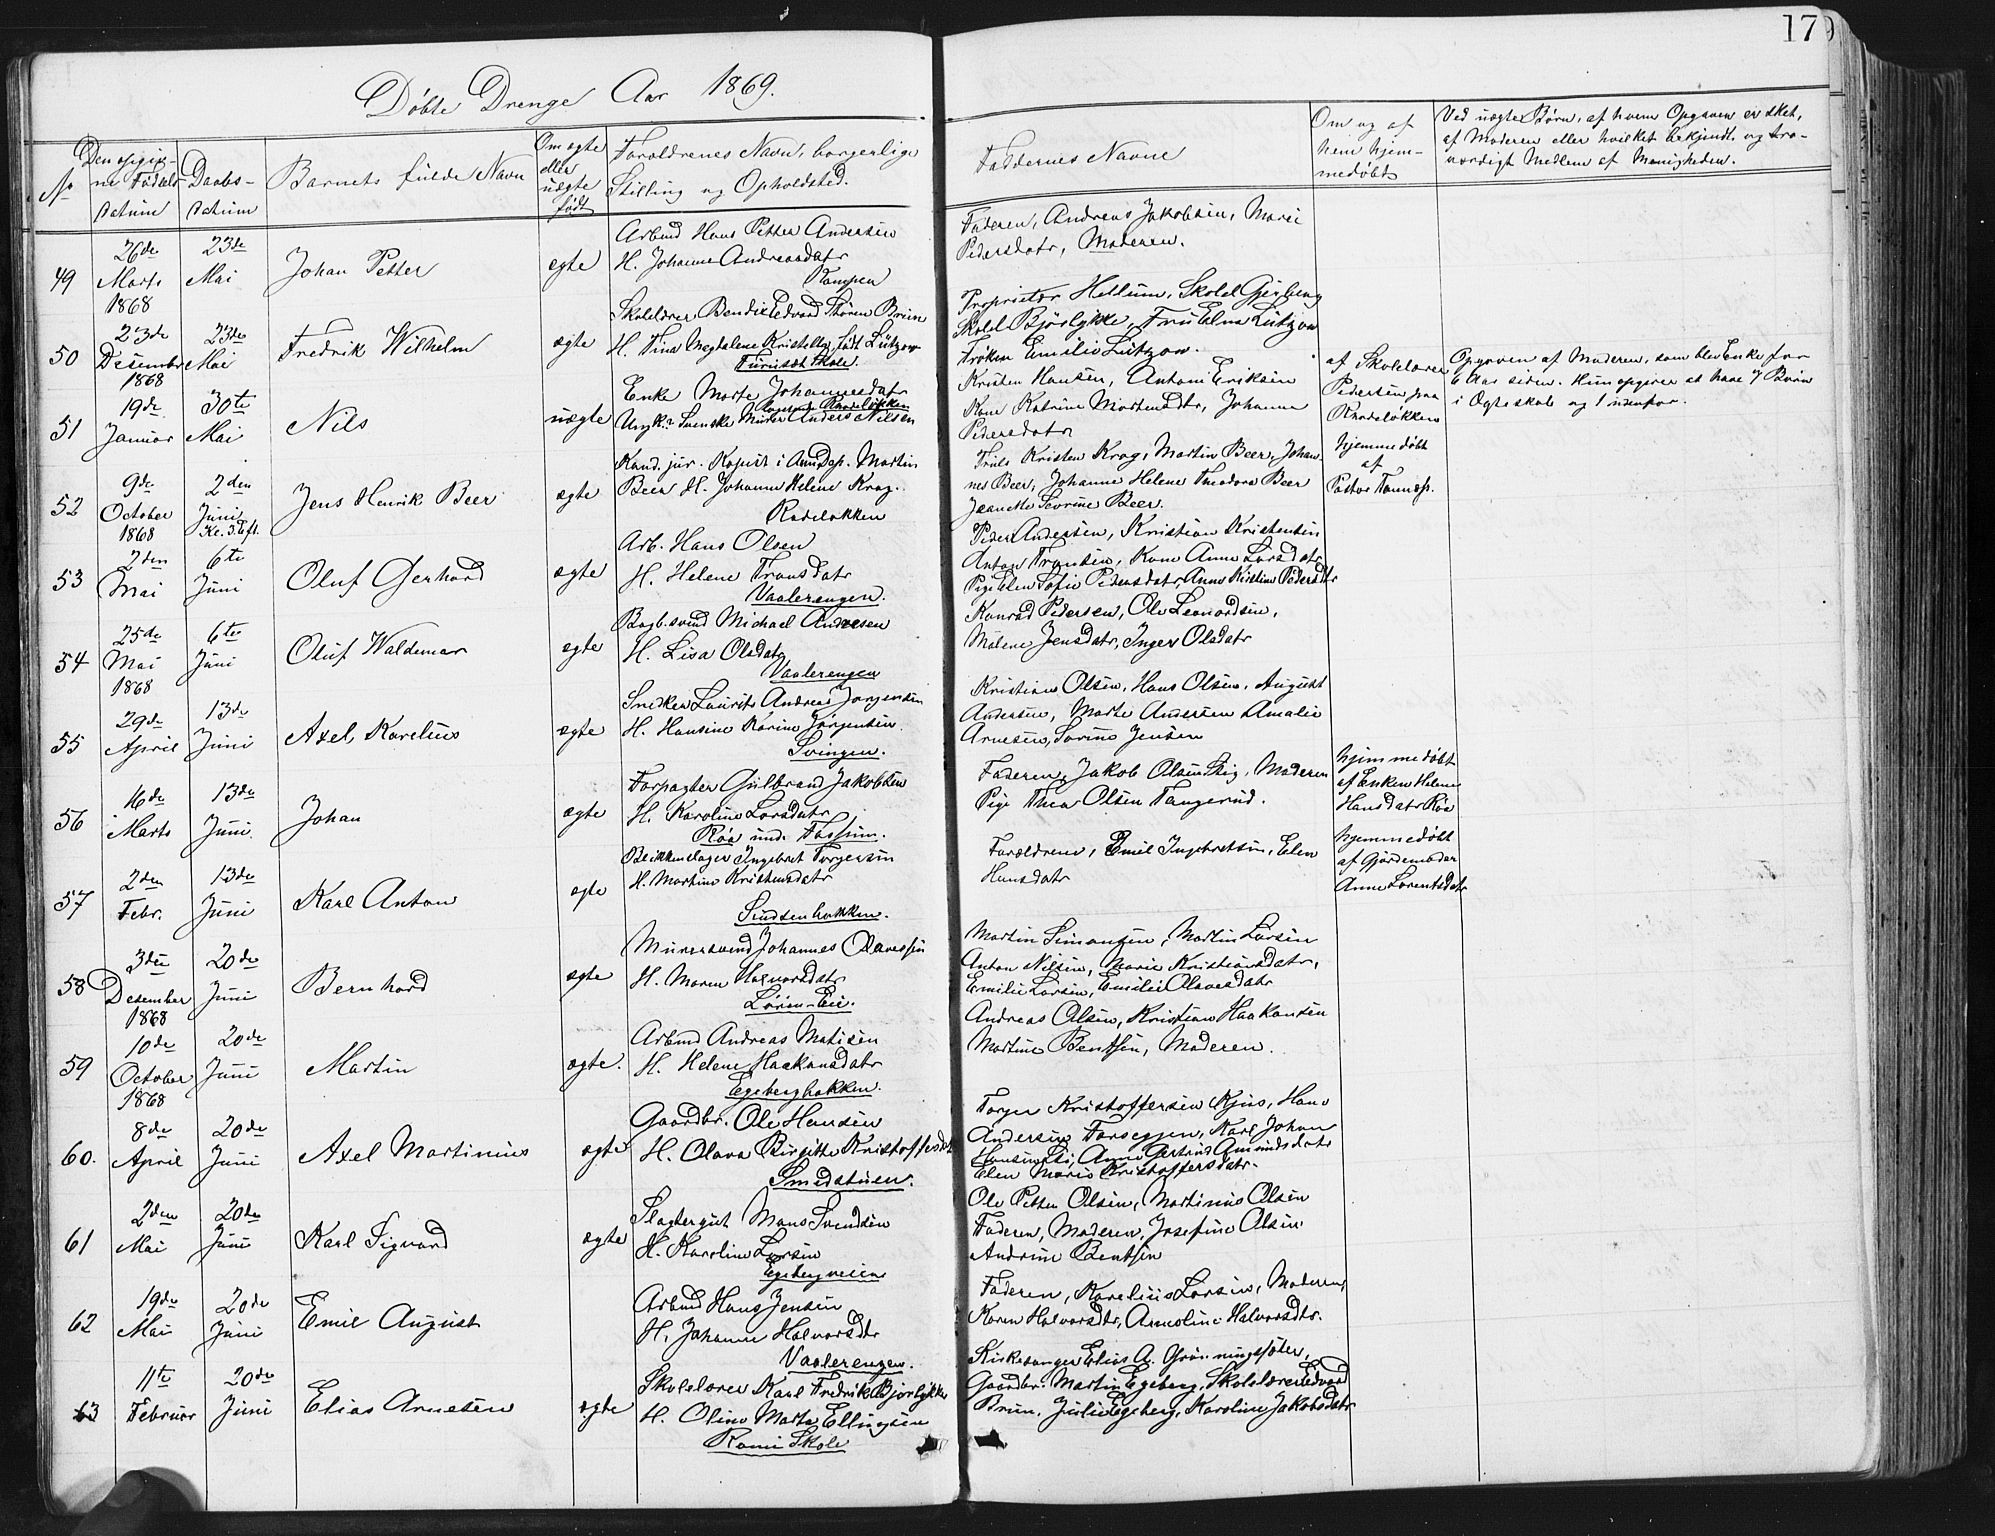 179
Døbte Drenge Aar 1869.
No
Den opgiv-
ne Fødsels
datum
Daabs-
datum
Barnets fulde Navn
Om ægte
eller
uægte
født
Forældrenes Navn, borgerlige
Stilling og Opholdsted.
Faddernes Navne
Om og af
hvem hjem-
medøbt
Ved uægte Børn, af hvem Opgaven er sket,
af Moderen eller hvilket bekjendt og tro-
værdigt Medlem af Menigheden.
49
26de
Marts
1868
23de
Mai
Johan Petter
ægte
Arbmd Hans Petter Andersen
H. Johanne Andreasdatr
Kampen
Faderen, Andreas Jakobsen, Marie
Pedersdatr, Moderen.
50
23de
Desember
1868
23de
Mai
Fredrik Wilhelm
ægte
Skolelærer Bendix Edvard Thören Bruun
H. Tina Magdalene Kristelly født Lützow
Furuset Skole.
Proprietær Hellum, Skolel Gjerberg
Skolel Bjørlykke, Fru Elna Lützow
Frøken Emilie Lützow.
51
19de
Januar
30te
Mai
Nils
uægte
Enke Marte Johannesdatr
Rodeløkken
Ungk. Svenske Murer Anders Nilsen
Kristen Hansen, Antoni Eriksen
Kone Katrine Mortensdtr, Johanne
Pedersdatr
af Skolelærer
Pedersen paa
Rodeløkken
Opgaven af Moderen, som blev Enke for
6 Aar siden. Hun opgiver at have 7 Børn
i Ægteskab og 1 udenfor.
52
9de
October
1868
2den
Juni
Kl. 3. Eft.
Jens Henrik Beer
ægte
Kand. jur. Kopist i Dep. Martin
Beer H. Johanne Helene Krag.
Rodeløkken
Kristen Krag, Martin Beer, Johan-
nes Beer, Johanne Helene Theodora Beer
Jeanette Severine Beer.
hjemmedøbt
af
Pastor
53
2den
Mai
6te
Juni
Oluf Gerhard
ægte
Arb. Hans Olsen
H. Helene Fransdatr
Vaalerengen.
Peder Andersen, Kristian Kristensen
Anton Fransen, Kone Anne Larsdatr
Pige Elen Sofie Pedersdatr, Anne Kirstine Pedersdtr
54
25de
Mai
1868
6te
Juni
Oluf Waldemar
ægte
Bogb.svend Michael Andresen
H. Lisa Olsdatr
Vaalerengen
Konrad Pedersen, Ole Leonardsen,
Malene Jensdatr, Inger Olsdatr
55
29de
April
13de
Juni
Axel Karelius
ægte
Snidker Laurits Andreas Jørgensen
H. Hansine Karine Jørgensen.
Svingen.
Kristian Olsen, Hans Olsen, August
Andersen, Marte Andersen Amalie
Arnesen, Sørine Jensen
56
16de
Marts
13de
Juni.
Johan
ægte
Forpagter Gulbrand Jakobsen
H. Karoline Larsdatr
Røa und. Fossum.
Faderen, Jakob Olsen Stig, Moderen
Pige Thea Olsen Tangerud.
hjemmedøbt
af Enken Helene
Hansdatr Røa
57
2den
Febr.
13de
Juni
Karl Anton
ægte
Blikkenslager Ingebret Torgersen
H. Martine Kristensdatr
Sinsenbakken.
Forældrene, Emil Ingebretsen, Elen
Hansdatr
hjemmedøbt
af Gjordemoder
Anne Lorentsdatr
58
3die
Desember
1868
20de
Juni
Bernhard
ægte
Murersvend Johannes Olavessen
H. Maren Halvorsdatr
Løren-Eie.
Martin Simonsen, Martin Larsen
Anton Nilsen, Marie Kristiansdatr,
Emilie Larsen, Emilie Olavesdatr
59
10de
October
1868
20de
Juni
Martin
ægte.
Arbmd Andreas Matisen
H. Helene Haakonsdatr
Egebergbakken.
Andreas Olsen, Kristian Haakonsen
Martine Bentsen, Moderen.
60.
8de
April
20de
Juni
Axel Martinius
ægte
Gaardbr. Ole Hansen
H. Olava Birgitte Kristoffersdtr
Smedstuen.
Torger Kristoffersen Kjus, Hans
Andersen Forseggen, Karl Johan
Anne Gertrud Amundsdatr
Elen Marie Kristoffersdatr.
61
2den
Mai
20de
Juni
Karl Sigvard
ægte
Slagtergut Mons Svendsen
H. Karoline Larsen
Egebergveien
Ole Petter Olsen, Martinus Olsen
Faderen, Moderen, Josefine Olsen
Andrine Bentsen
62
19de
Mai
20de
Juni
Emil August
Arbmd Hans Jensen
H. Johanne Halvorsdtr
Vaalerengen.
Faderen, Karelius Larsen, Moderen,
Karen Halvorsdtr, Arnoline Halvorsdtr.
63
11te
Februar
20de
Juni
Elias Arnesen
ægte
Skolelærer Karl Fredrik Bjørlykke
H. Oline Marta Ellingsen
Rommi Skole
Kirkesanger Elias A. Grønningssæter,
Gaardbr. Martin Egeberg, Skolelærer Edvard
Bruun, Julie Egeberg, Karoline Jakobsdatr